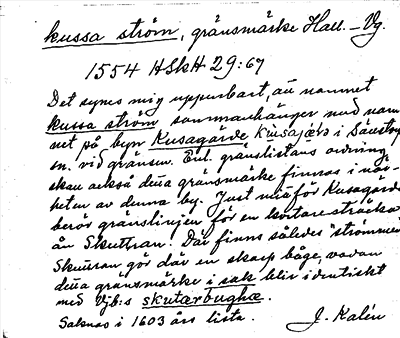 kussa ström, gränsmärke Hall. – Vg.
1554 HSkH 29:67
Det synes mig uppenbart, att namnet
kussa ström sammanhänger med nam-
net på byn Kusagärde i
sn. vid gränsen. Enl. gränslistans ordning
skall också detta gränsmärke finnas i när-
heten av denna by. Just nedanför Kusagärde
berör gränslinjen för en kortare sträcka
ån Skuttran. Där finns således "strömmen"
Skuttran gör där en skarp båge, vadan
detta gränsmärke i sak blir identiskt
med Vgl:s skutarbughæ.
Saknas i 1603 års lista. J. Kalén